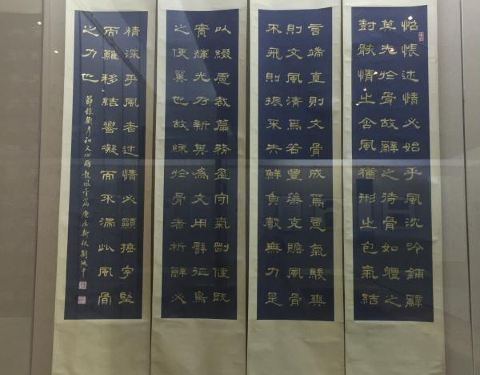 怊悵述情必始乎風沈吟鋪辭
莫先於骨故辭之待骨如體之
樹骸情之含風猶形之包氣結
言端直則文骨成焉意氣駿爽
則文風清焉若豐藻克贍風骨
不飛則振采失鮮負聲無力是
以綴慮裁篇務盈守氣剛健既
實輝光乃新其為文用譬征鳥
之使翼也故練於骨者析辭必
精深乎風者述情必顯捶字堅
而難移結響凝而不滯此風骨
之力也
節錄劉彥和文心雕龍風骨篇